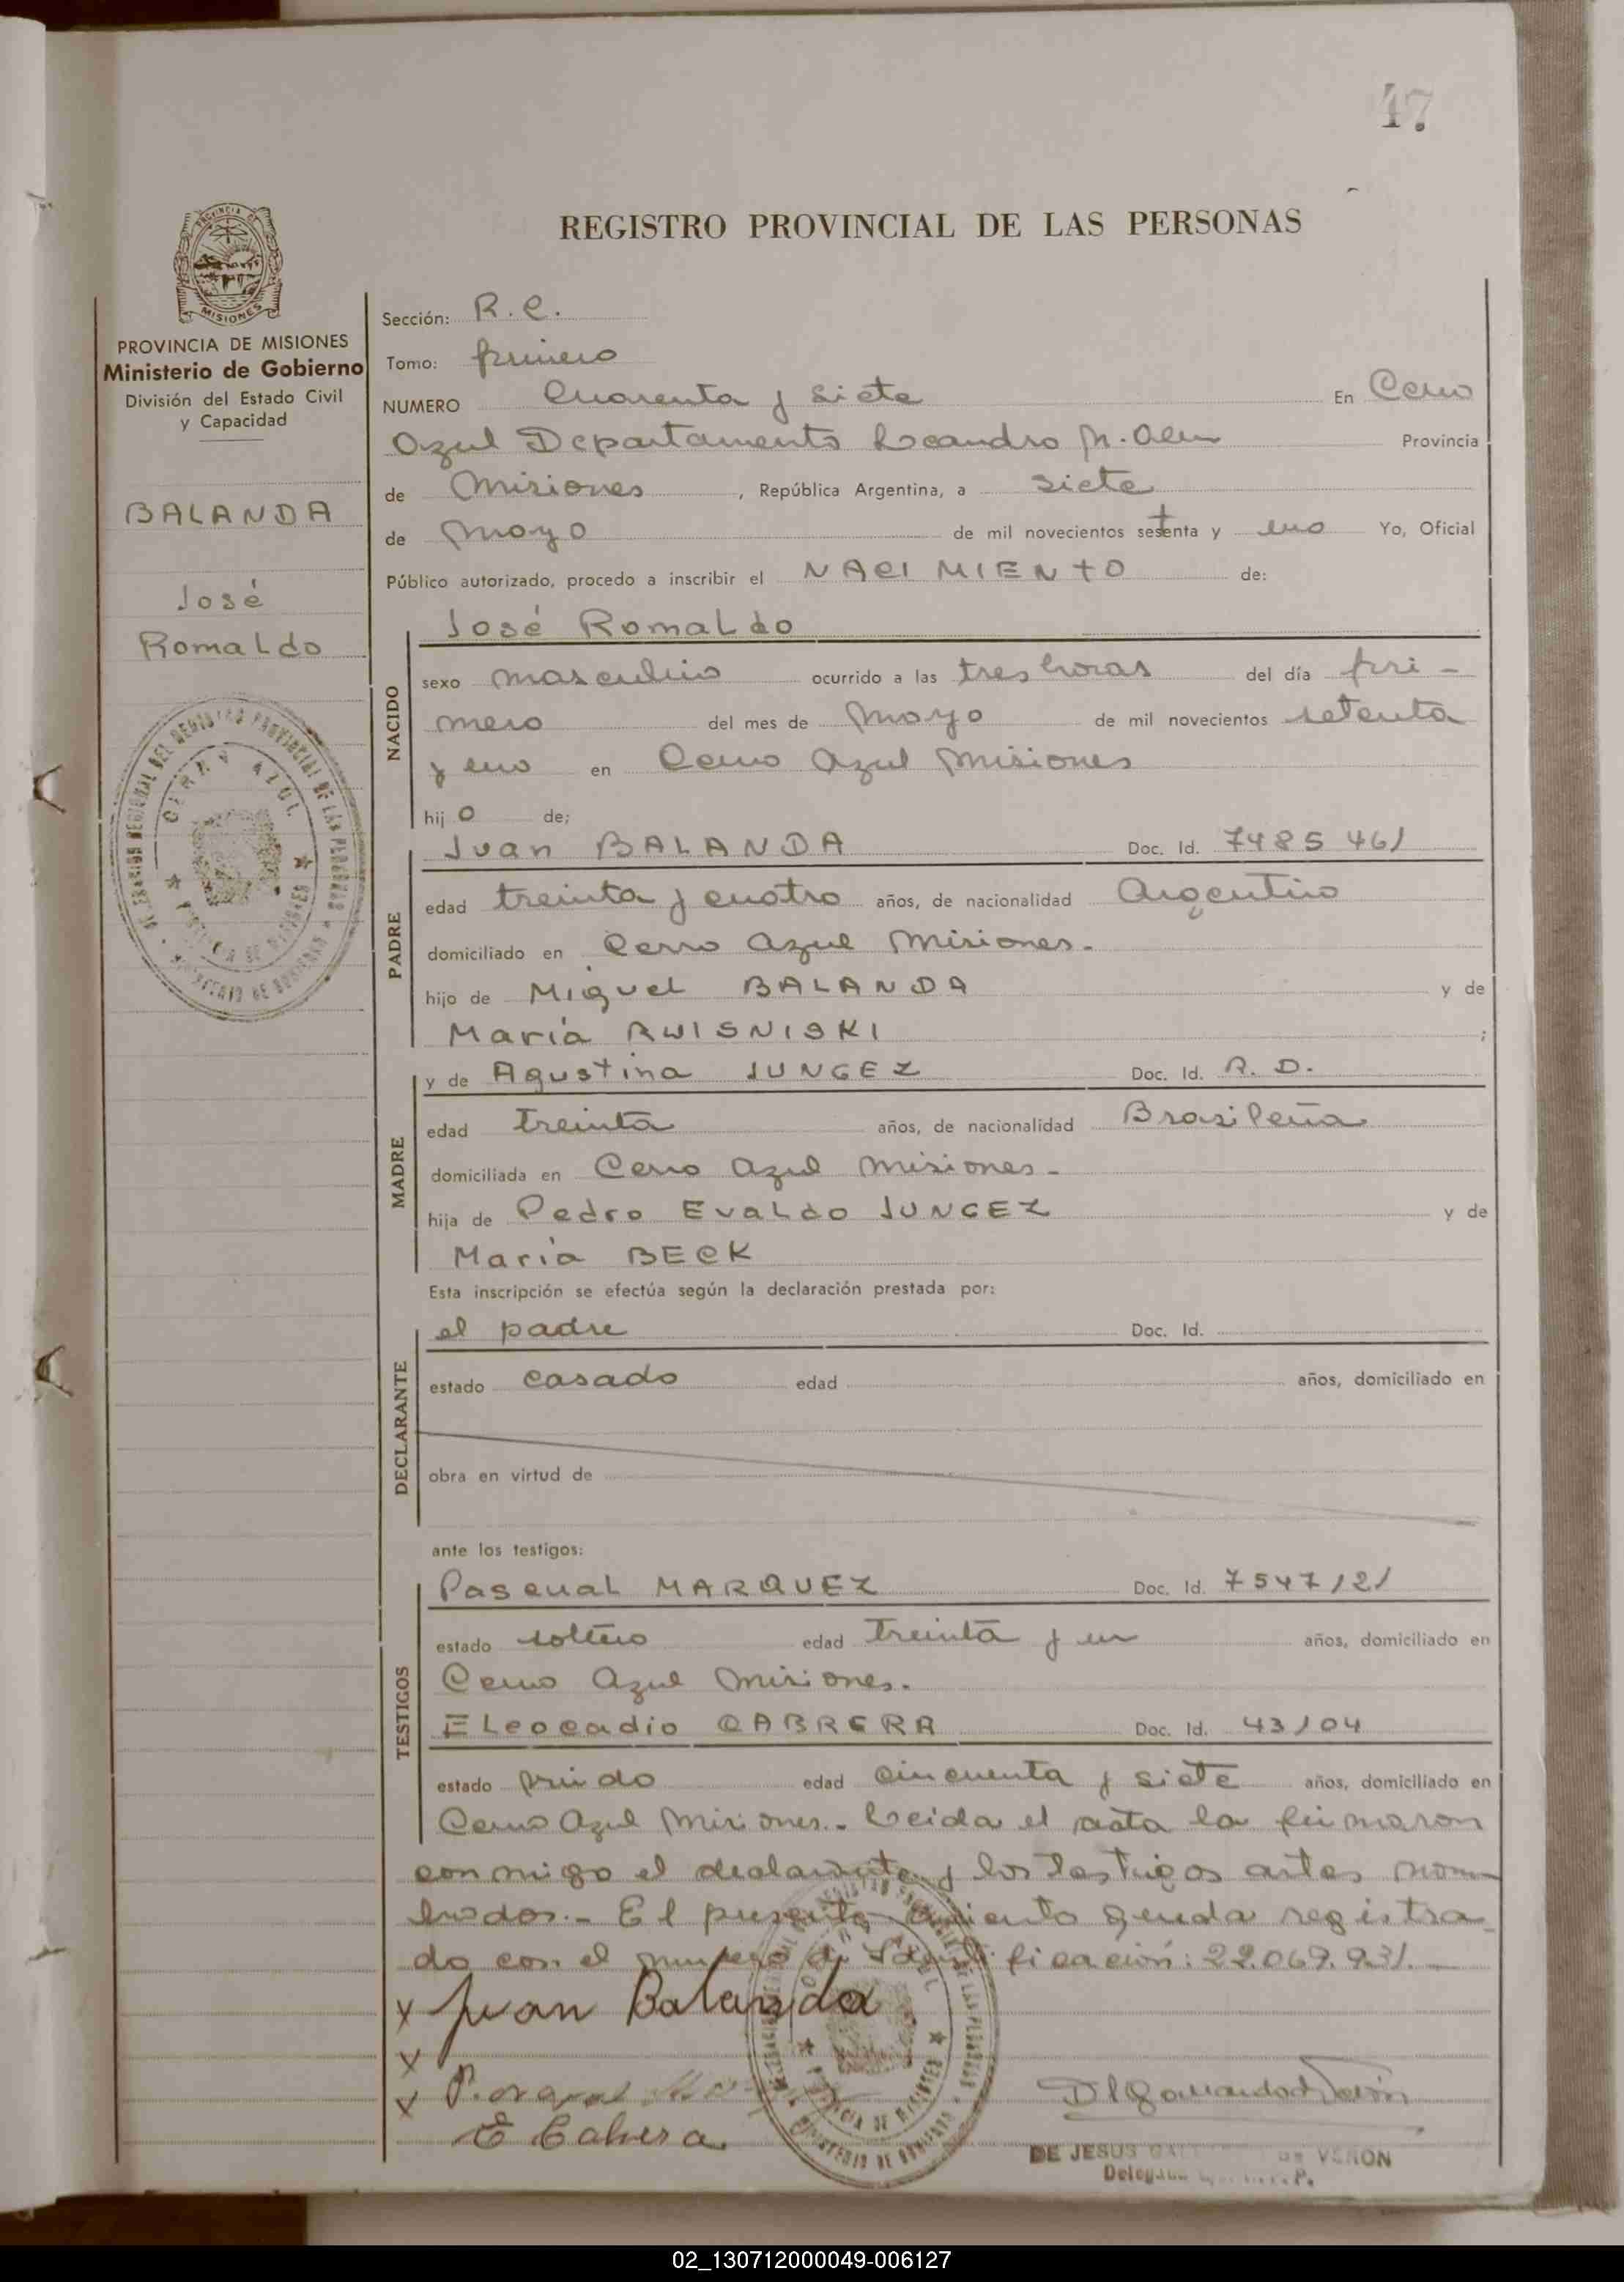 47
REGISTRO PROVINCIAL DE LAS PERSONAS
PROVINCIA DE MISIONES
Ministerio de Gobierno
División del Estado Civil
y Capacidad
BALANDA
José
Romaldo
Sección: R.C.
Tomo: primero
NUMERO Cuarenta y siete En Cerro
Azul Departamento Leandro N. Alem Provincia
de Misiones, República Argentina, a siete
de mayo de mil novecientos setenta y uno Yo, Oficial
Público autorizado, procedo a inscribir el NACIMIENTO de:
José Romaldo
NACIDO
sexo masculino ocurrido a las tres horas del día pri-
mero del mes de Mayo de mil novecientos setenta
y uno en Cerro Azul Misiones
hijo de;
Juan BALANDA Doc. Id. 7485461
PADRE
edad treinta y cuatro años, de nacionalidad Argentino
domiciliado en Cerro Azul Misiones.
hijo de Miguel BALANDA y de
María RWISNISKI;
MADRE
y de Agustina JUNGEZ Doc. Id. R. D.
edad treinta años, de nacionalidad Brasileña
domiciliada en Cerro Azul Misiones-
hija de Pedro Evaldo JUNGEZ y de
María BECK
Esta inscripción se efectúa según la declaración prestada por:
DECLARANTE
el padre Doc. Id.
estado casado edad años, domiciliado en
obra en virtud de
ante los testigos:
TESTIGOS
Pascual MARQUEZ Doc. Id. 7547121
estado soltero edad treinta y un años, domiciliado en
Cerro Azul Misiones.
Eleocadio CABRERA Doc. Id. 43104
estado viudo edad cincuenta y siete años, domiciliado en
Cerro Azul Misiones.- Leida el acta la firmaron
conmigo el declarante y los testigos antes nom
brados.- El presente asiento queda registra
do con el numero de Identificación: 22.069.931.-
x Juan Balanda
x
x
E Cabrera
DE JESUS DE VERON
02_130712000049-006127